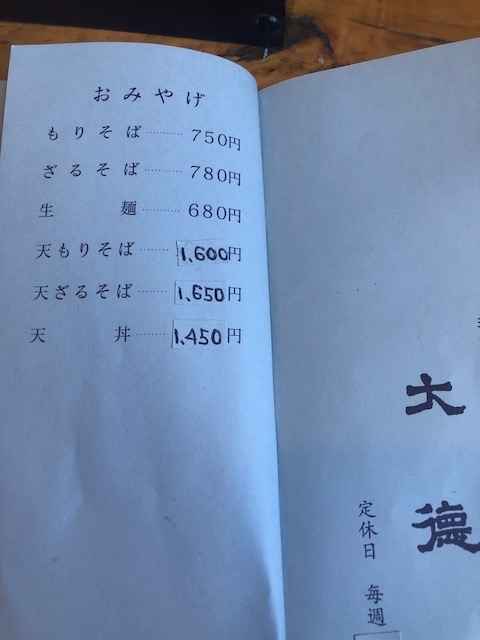 おみやげ
もりそば………750円
ざるそば………780円
生麺………680円
天もりそば……1,600円
天ざるそば……1,650円
天丼……1,450円
大
德
定休日 毎週